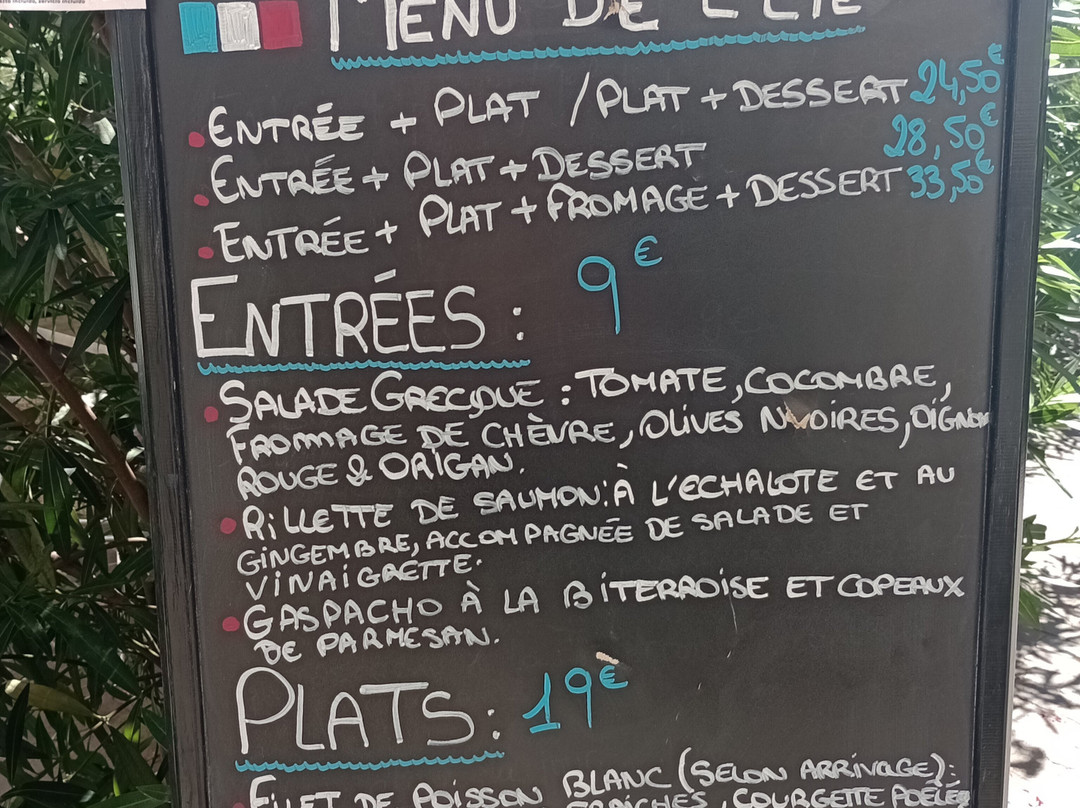 MENU DE L'ÉTÉ
• ENTRÉE + PLAT / PLAT + DESSERT 24,50€
• ENTRÉE + PLAT + DESSERT 28,50€
• ENTRÉE + PLAT + FROMAGE + DESSERT 33,50€
ENTRÉES : 9€
• SALADE GRECQUE : TOMATE, COCOMBRE,
FROMMAGE DE CHÈVRE, OLIVES NOIRES, OIGNON
ROUGE & ORIGAN.
• RILLETTE DE SAUMON : À L'ECHALOTE ET AU
GINGEMBRE, ACCOMPAGNÉE DE SALADE ET
VINAIGRETTE.
• GASPACHO À LA BITERROISE ET COPEAUX
DE PARMESAN.
PLATS : 19€
• FILET DE POISSON BLANC (SELON ARRIVAGE) :
FRAÎCHES, COURGETTE POÊLÉE